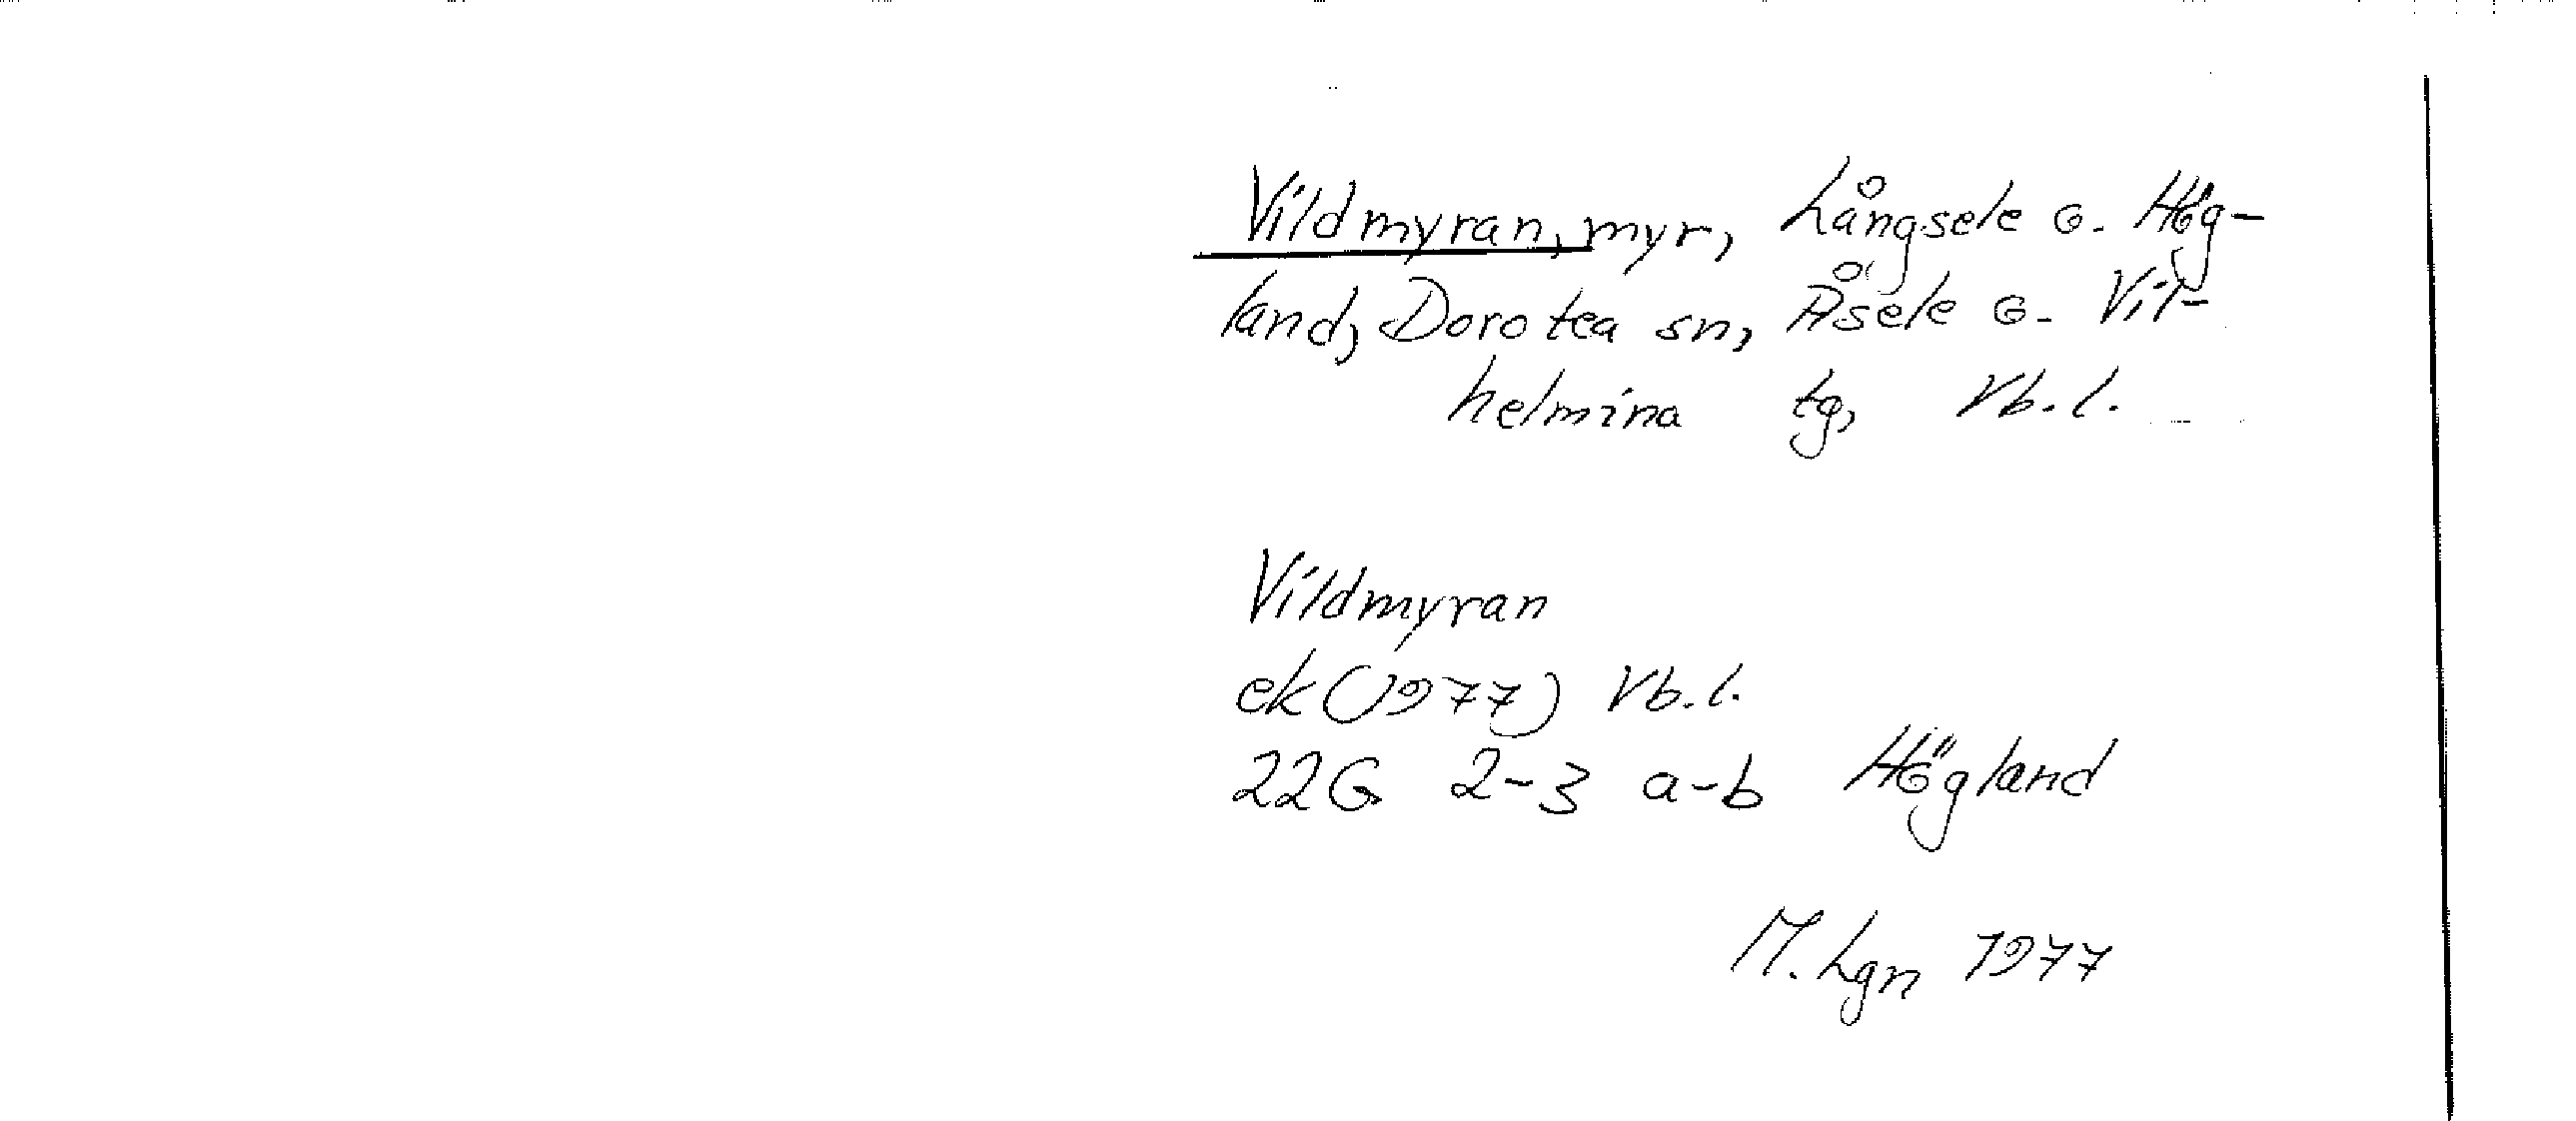 Vildmyran, myr, Långsele o. Hög-
land, Dorotea sn, Åsele o. Vil-
helmina tg, Vb. l.
Vildmyran
ek (1977) Vb. l.
22G 2-3 a-b Högland
M. Lgn 1977